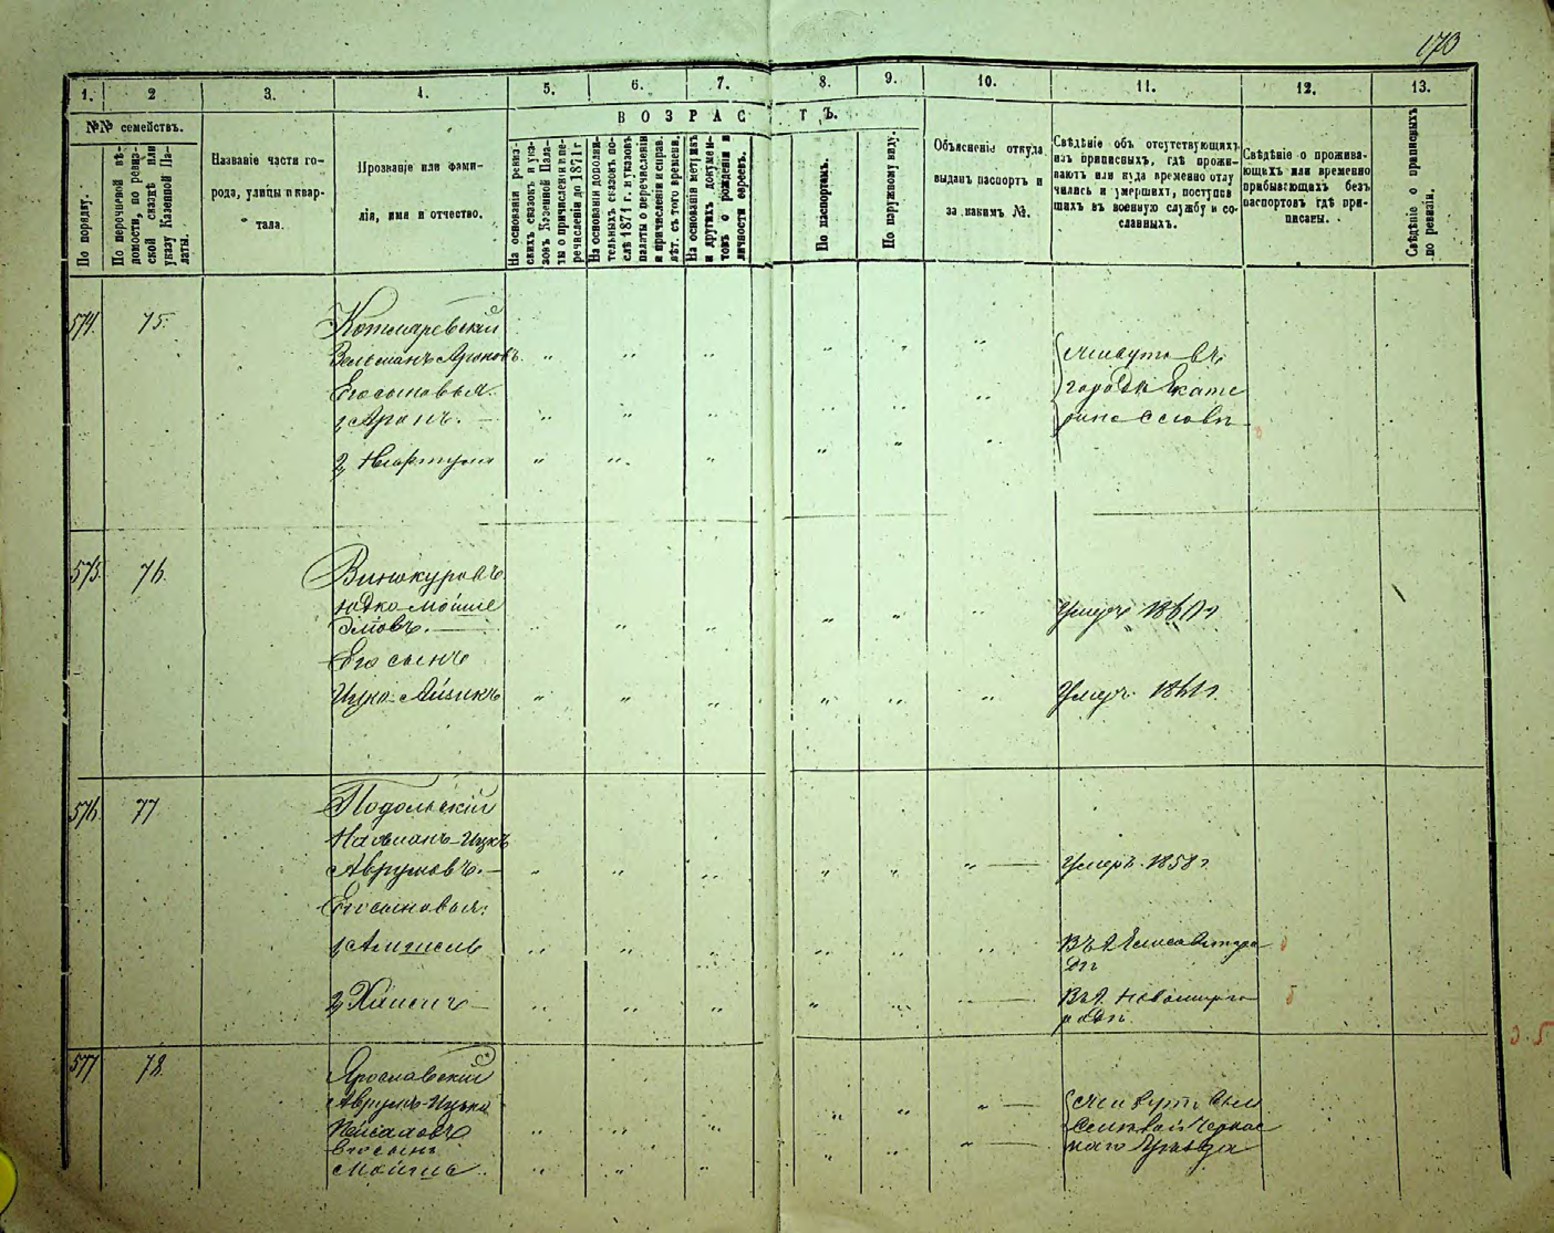 170
1. 2 3. 4. 5. 6. 7. 8. 9. 10. 11. 12. 13.
№№ семействъ.
По порядку.
По перечневой вѣ-
домости, по ревиз-
ской сказкѣ или
указу Казенной Па-
латы.
Названіе части го-
рода, улицы и квар-
тала.
Прозваніе или фами-
лія, имя и отчество.
ВОЗРАСТЪ.
На основаніи ревиз-
скихъ сказокъ и ука-
зовъ Казенной Пала-
ты о причисленіи и пе-
речисленіи до 1871 г
На основаніи дополни-
тельныхъ сказокъ по-
слѣ 1871 г. и указовъ
палаты о перечисленіи
и причисленіи и справ.
лѣт. съ того времени.
На основаніи метрикъ
и другихъ докумен-
товъ о рожденіи и
личности евреевъ.
По паспортамъ.
По наружному виду.
Объясненіе откуда
выданъ паспортъ и
за какимъ №.
Свѣдѣніе объ отсутствующихъ
изъ приписныхъ, гдѣ прожи-
ваютъ или куда временно отлу
чились и умершихъ, поступив
шихъ въ военную службу и со-
сланныхъ.
Свѣдѣніе о прожива-
ющихъ или временно
прибывающихъ безъ
паспортовъ гдѣ при-
писаны.
Свѣдѣніе о приписныхъ
по ревизіи.
574. 75.
Котляревскій
Вольманъ Ароновъ
Его сыновья
1, Аронъ.
Живутъ въ
городѣ Екате
ринославѣ
575. 76.
Винокуровъ
Юдко-Мойше
Его сынъ
Ицко-Айзикъ
Умеръ
Умеръ 1861 г.
576. 77
Подольскій
Нахманъ-Ицкъ
Аврумовъ.
Умеръ 1858 г
Его сыновья:
Въ г. Елисаветгра
дѣ
2, Хаимъ
Въ г. Новомирго
родѣ
577 78.
Ярославскій
Аврумъ-Ицько
Пейсаховъ
Его сынъ
Мойше
Живутъ
уѣзда